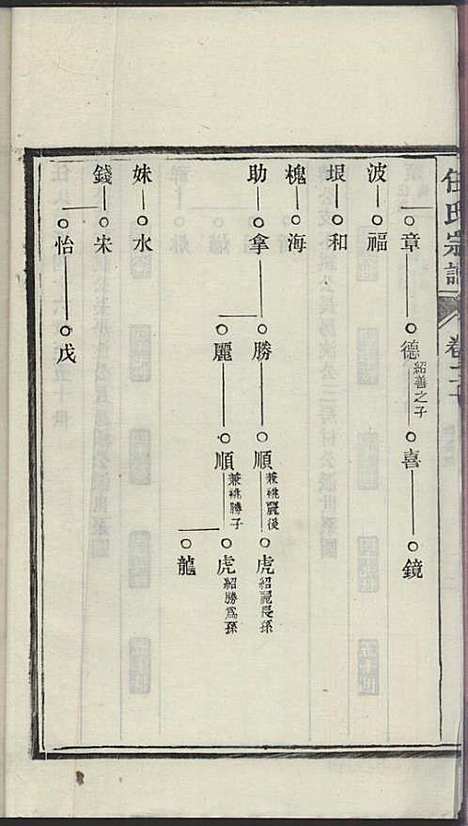 任氏宗譜 卷之
章 德 紹善之子 喜 鏡
波 福
垠 和
槐 海
助 拿 勝 順 兼祧麗後 虎 紹麗長孫
麗 順 兼祧勝子 虎 紹勝爲孫
龍
妹 水
錢 宋
怡 戊